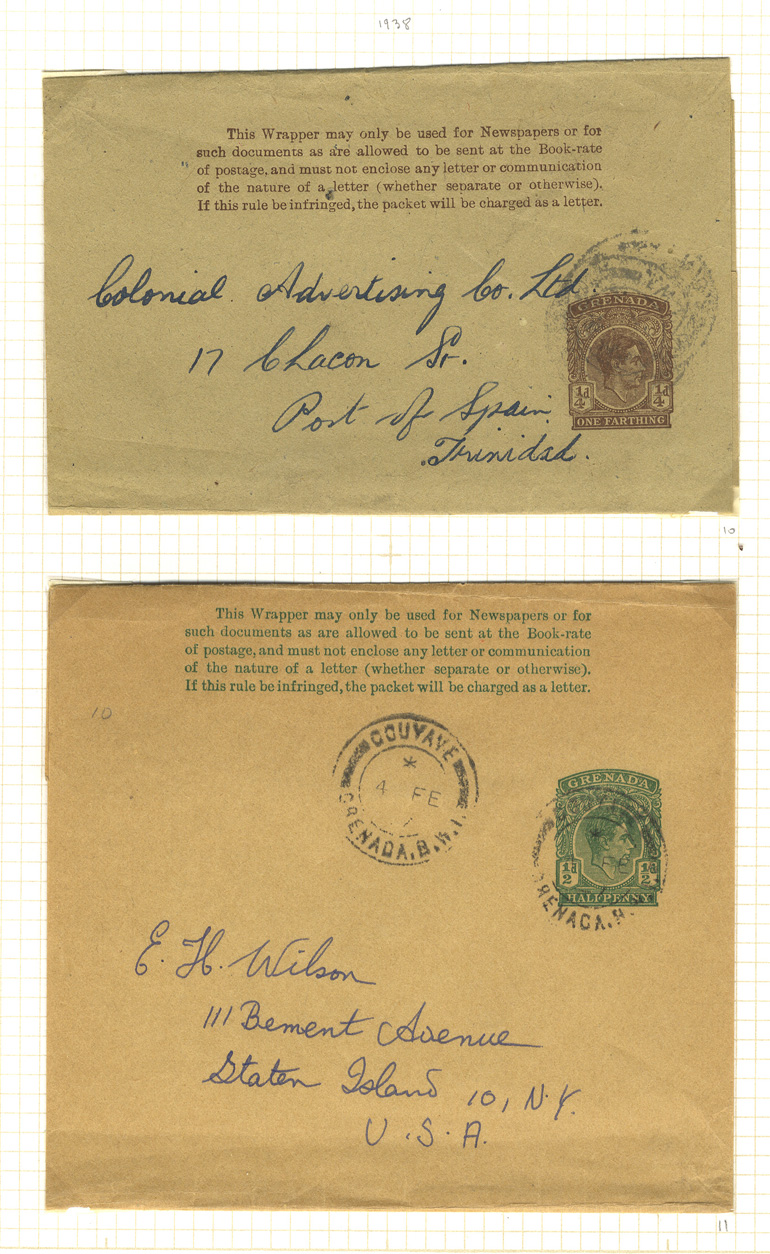 1938
This Wrapper may only be used for Newspapers or for
such documents as are allowed to be sent at the Book-rate
of postage, and must not enclose any letter or communication
of the nature of a letter (whether separate or otherwise).
If this rule be infringed, the packet will be charged as a letter.
Colonial Advertising Co. Ltd.
17 Chacon St.
Port of Spain
Trinidad.
GRENADA
1/4d 1/4d
ONE FARTHING
10
This Wrapper may only be used for Newspapers or for
such documents as are allowed to be sent at the Book-rate
of postage, and must not enclose any letter or communication
of the nature of a letter (whether separate or otherwise).
If this rule be infringed, the packet will be charged as a letter.
10
GOUYAVE
*
4 FE
GRENADA. B.W.I.
GRENADA
1/2d 1/2d
HALFPENNY
GRENADA. B.
E. H. Wilson
111 Bement Avenue
Staten Island 10, N.Y.
U.S.A.
11